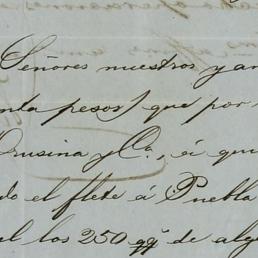 Señores nuestros y am
nta pesos) que por
Crusina y Ca, á qui
do el flete á Puebla
el los 250 qq de alg